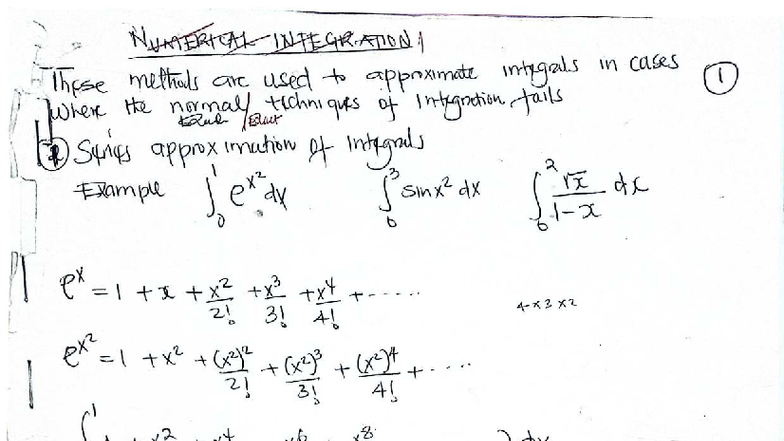 NUMERICAL INTEGRATION
These methods are used to approximate integrals in cases
where the normal techniques of Integration fails
①
Exact
Series approximation of Integrals
Example ∫₀¹ e^{x²} dx ∫₀³ sin x² dx ∫₀² √x/(1-x) dx
e^x = 1 + x + x²/2! + x³/3! + x⁴/4! + ------
4×3×2
e^{x²} = 1 + x² + (x²)²/2! + (x²)³/3! + (x²)⁴/4! + ....